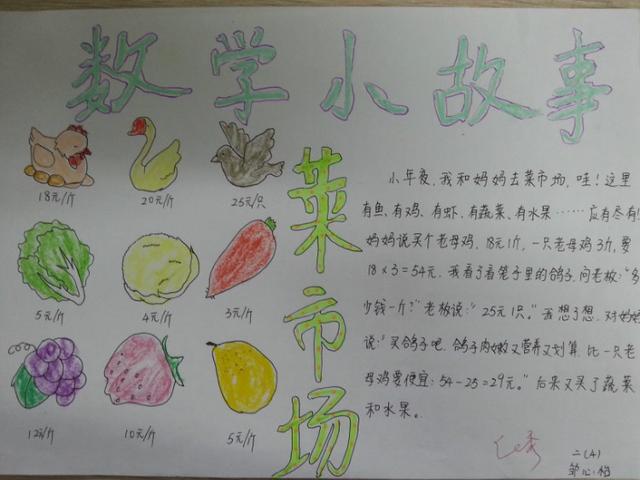 数学小故事
18元/斤
20元/斤
25元/只
5元/斤
4元/斤
3元/斤
12元/斤
10元/斤
5元/斤
菜市场
小年夜,我和妈妈去菜市场,哇!这里
有鱼、有鸡、有虾、有蔬菜、有水果……应有尽有!
妈妈说买个老母鸡,18元1斤,一只老母鸡3斤,要
18×3=54元。我看了看笼子里的鸽子,问老板:“多
少钱一斤?”老板说:“25元1只。”我想了想,对妈妈
说:“买鸽子吧,鸽子肉嫩又营养又划算,比一只老
母鸡要便宜:54-25=29元。”后来又买了蔬菜
和水果。
优秀
二(4)
邹心